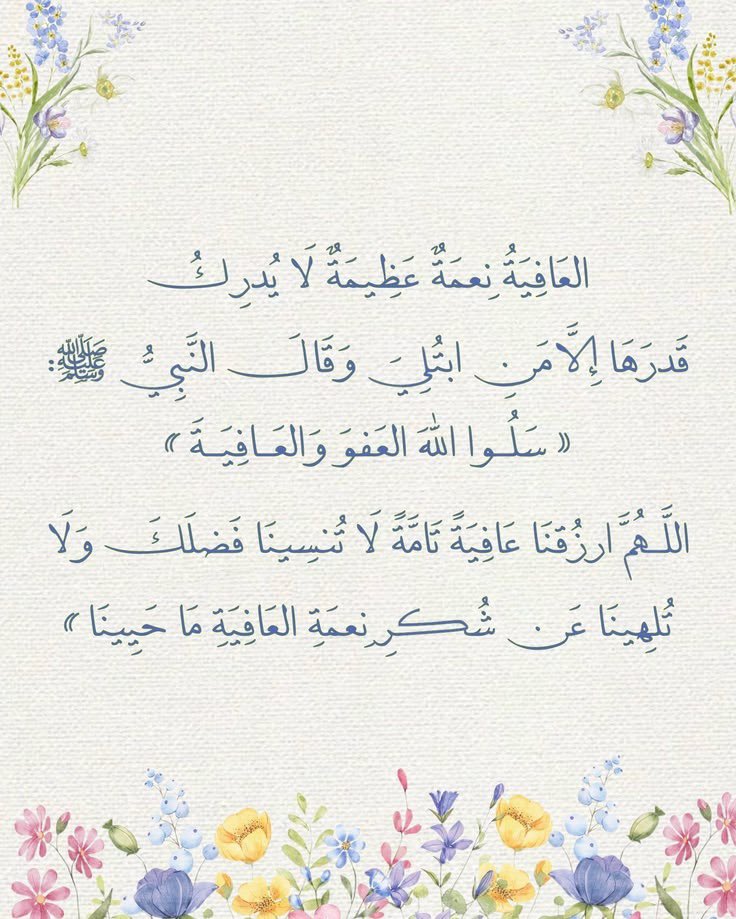 العَافِيَةُ نِعمَةٌ عَظِيمَةٌ لَا يُدرِكُ
قَدرَهَا إِلَّا مَنِ ابتُلِيَ وَقَالَ النَّبِيُّ ﷺ:
« سَلُوا اللهَ العَفوَ وَالعَافِيَةَ »
اللَّهُمَّ ارزُقنَا عَافِيَةً تَامَّةً لَا تُنسِينَا فَضلَكَ وَلَا
تُلهِينَا عَن شُكرِ نِعمَةِ العَافِيَةِ مَا حَيِينَا »